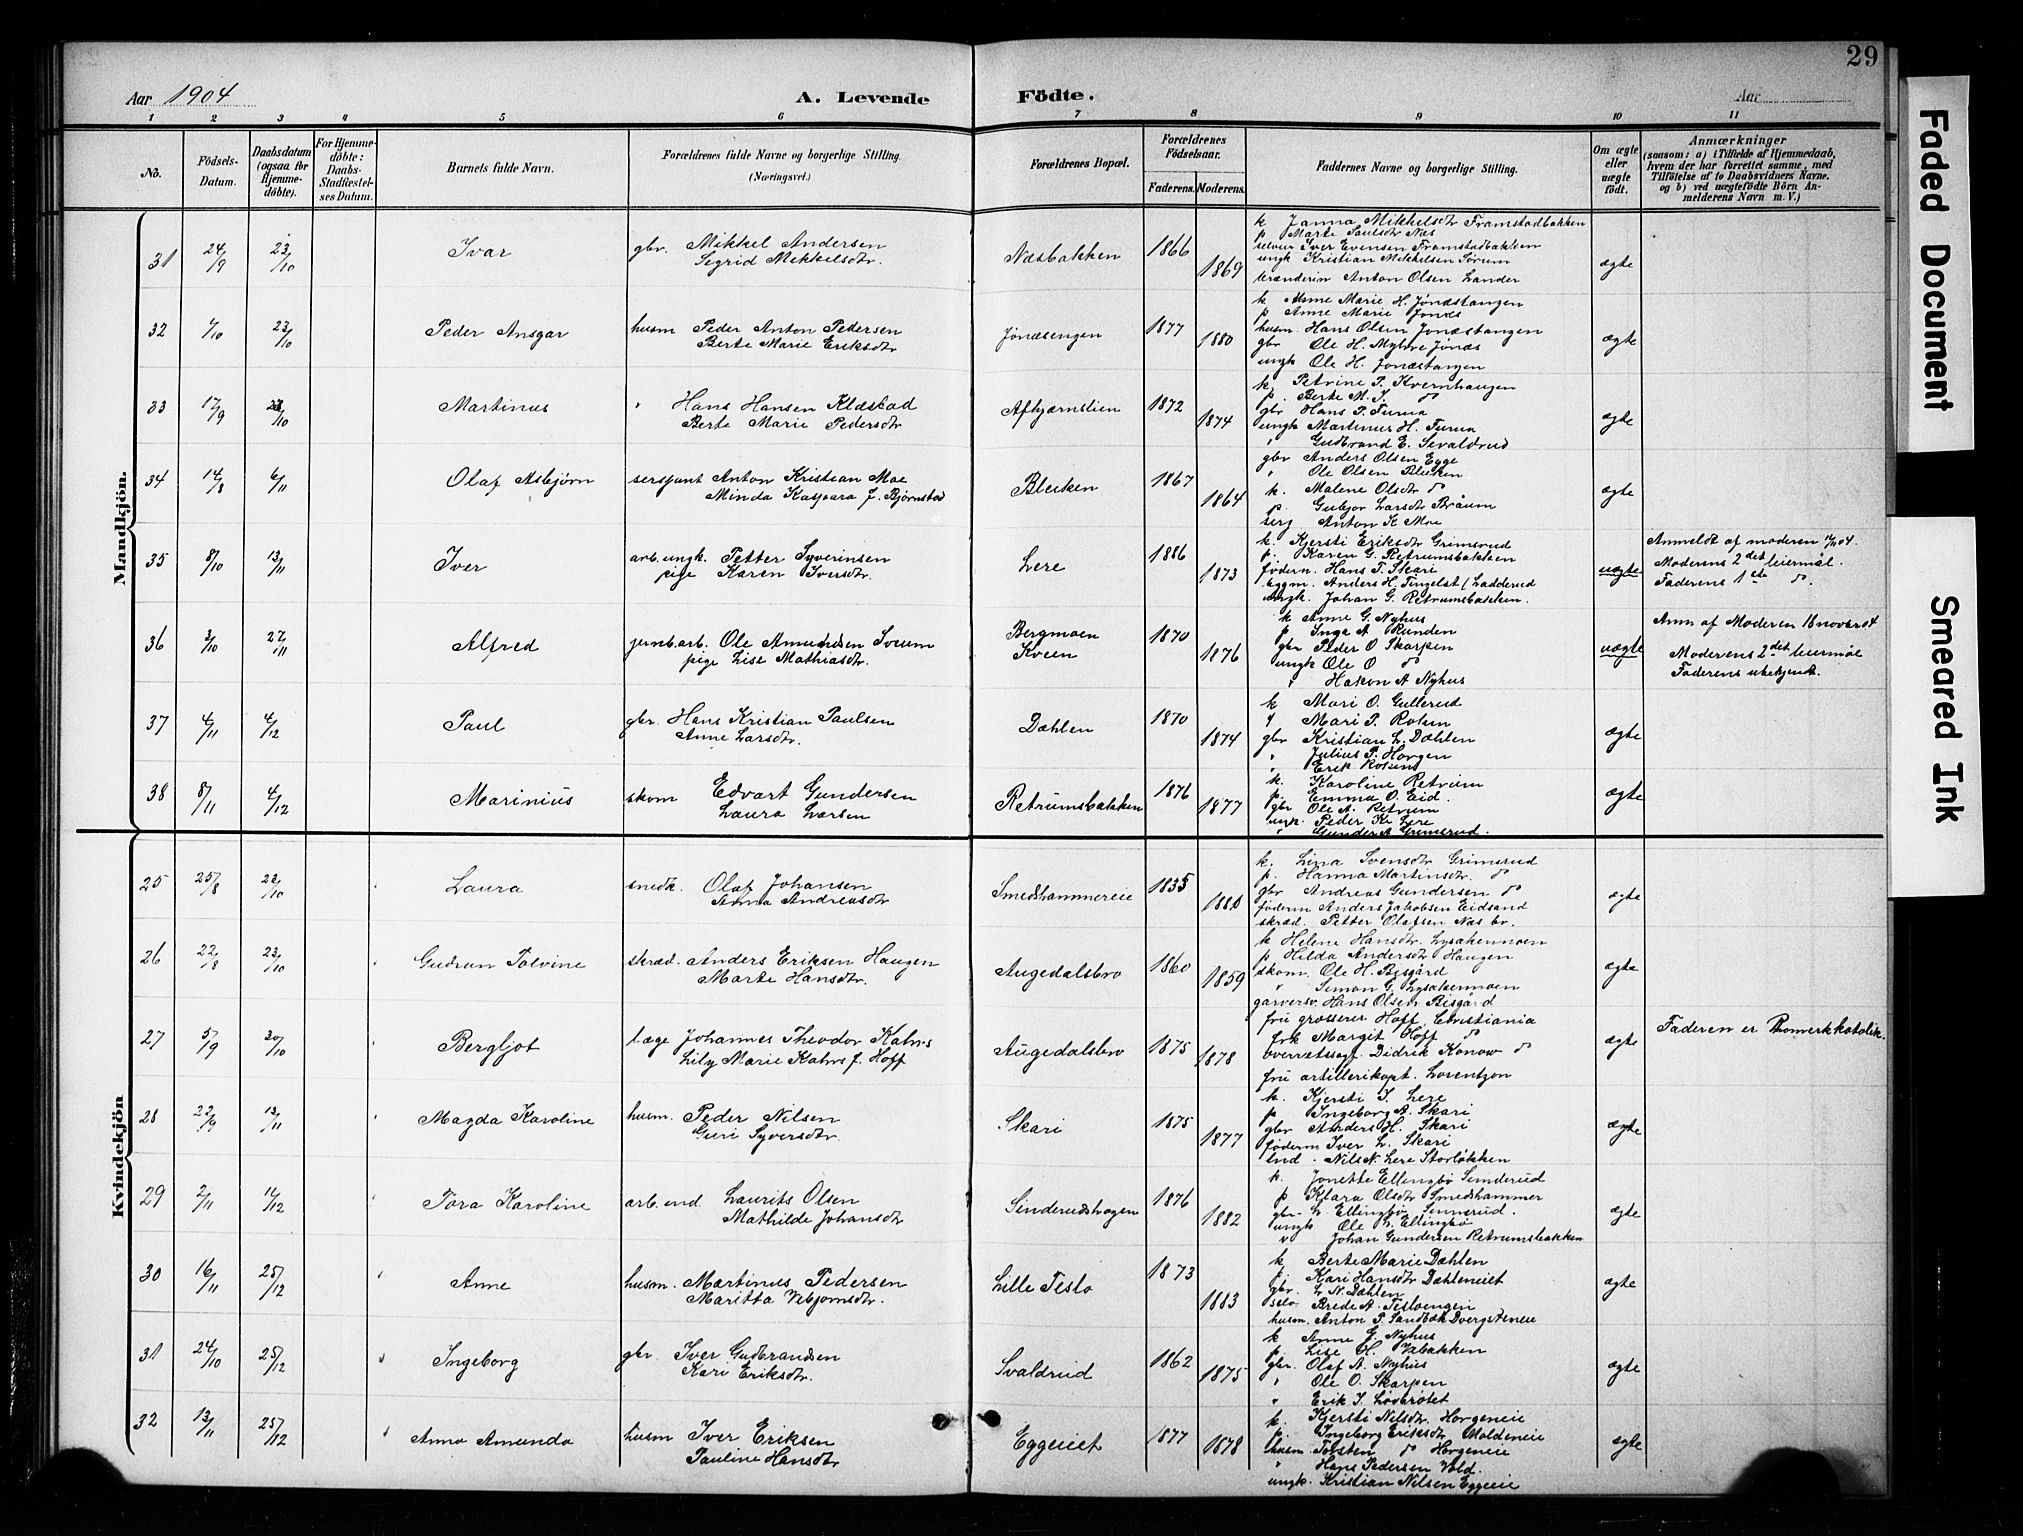 29
Aar 1904
A. Levende Födte.
Aar
1 2 3 4 5 6 7 8 9 10 11
No.
Födsels-Datum.
Daabsdatum (ogsaa for Hjemmedöbte).
For Hjemmedöbte: Daabs-Stadfæstelses Datum.
Barnets fulde Navn.
Forældrenes fulde Navne og borgerlige Stilling.
(Næringsvei.)
Forældrenes Bopæl.
Forældrenes Födselsaar.
Faderens. Moderens.
Faddernes Navne og borgerlige Stilling.
Om ægte eller uægte födt.
Anmærkninger
(saasom: a) i Tilfælde af Hjemmedaab, hvem der har forrettet samme, med Tilföielse af to Daabsvidners Navne. og b) ved uægtefödte Börn Anmelderens Navn m. V.)
Mandkjön.
31 24/9 23/10 Ivar gbr. Mikkel Andersen
Sigrid Mikkelsdtr. Næsbakken 1866 1869 ægte
k Janna Mikkelsdtr Framstadbakken
p Marte Paulsdtr Næs
selveier Iver Evensen Framstadbakken
ungk Kristian Mikkelsen Sørum
Anton Olsen Lander
32 23/10 Peder Ansgar husm Peder Anton Pedersen
Berte Marie Eriksdtr Jønæsengen 1877 1880 ægte
k Anne Marie H. Jønæstangen
p Anne Marie Jønæs
husm. Hans Olsen Jonæstangen
gbr Ole H. Myhre Jønæs
ungk Ole H. Jonæstangen
33 17/9 23/10 Martinus " Hans Hansen Klæstad
Berte Marie Pedersdtr Afbjørnslien 1872 1874 ægte
k. Petrine P. Kvernhaugen
p. Berte M. J. do
gbr Hans P. Tuma
ungk Martinus H. Tuma
" Gudbrand E. Sevaldrud
34 14/8 6/11 Olaf Asbjørn sersjant Anton Kristian Moe
Minda Kaspara f. Bjørnstad Bleiken 1867 1864 ægte
gbr Anders Olsen Egge
" Ole Olsen Bleiken
k. Malene Olsdtr do
p. Gubjør Larsdtr Bråum
serg Anton K. Moe
35 8/10 13/11 Iver arb. ungk. Petter Syverinsen
pige Karen Iversdtr. Lere 1886 1873 uægte
k. Kjersti Eriksdtr Grimsrud
p. Karen G. Retrumsbakken
föderm. Hans T. Skari
Anders H. Tingelst (Ladderud
ungk. Johan G. Retrumsbakken.
Anmeldt af moderen
Moderens 2det leiermål.
Faderens 1ste do.
36 3/10 27/11 Alfred jernb.arb. Ole Amundsen Sorum
pige Lise Mathiasdtr. Bergmoen
Kveen 1870 1876 uægte
k Anne G. Nyhus
p Inga A Runden
gbr Peder O Skarpen
ungk Ole O do
" Hakon A Nyhus
Anm af Moderen 18 nover 04
Moderens 2det leiermål
Faderens ubekjendt.
37 4/11 4/12 Paul gbr. Hans Kristian Paulsen
Anne Larsdtr. Dæhlen 1870 1874 ægte
k Mari O. Gullerud
Mari P. Rolem
gbr Kristian L. Dæhlen
" Julius P. Horgen
" Erik
38 8/11 4/12 Marinius skom Edvart Gundersen
Laura Larsen Retrumsbakken 1876 1877 ægte
k. Karoline Retrum
p. Emma O. Eid.
gbr Ole A. Retrum
ungk. Peder K. Lere
" Gunder A Grimsrud.
Kvindekjön
25 25/8 23/10 Laura snedk. Olaf Johansen
Anna Andreasdtr Smedshammereie 1835 ægte
k. Lina Svensdtr Grimsrud
p. Hanna Martinsdtr. do
gbr Andreas Gundersen do
föderm Anders Jakobsen Eidsand
skræd. Petter Olafsen Næs br.
26 22/8 23/10 Gudrun Tolvine skræd. Anders Eriksen Haugen
Marte Hansdtr. Augedalsbro 1860 1859 ægte
k Helene Hansdtr. Lysakermoen
p Hilda Andersdtr Haugen
skom. Ole H. Bisgård
" Simon G. Lysakermoen
garversv. Hans Olsen Bisgård
27 5/9 30/10 Bergljot læge Johannes Theodor Kahrs
Lily Marie Kahrs f. Hoff Augedalsbro 1875 1878 ægte
fru grosserer Hoff, Christiania
frk Margit Hoff do
overretssagf. Didrik Konow do
fru artillerikapt. Lorentzon
Faderen er Romerkkatolik.
28 22/9 13/11 Magda Karoline husm. Peder Nilsen
Guri Syversdtr. Skari 1875 1877 ægte
k. Kjersti I. Lere
p Ingeborg A. Skari
gbr Anders H. Skari
föderm Iver L. Skari
Ind. Nils N. Lere Storløkken
29 2/11 11/12 Tora Karoline arb. ind Laurits Olsen
Mathilde Johansdtr Sinderudshagen 1876 1882 ægte
k. Jonette Ellingbø Sinderud
p Klara Olsdtr Smedshammer
gbr L Ellingbø Sinnerud.
ungk Ole L. Ellingbø
" Johan Gundersen Retrumsbakken
30 16/11 25/12 Anne husm. Martinus Pedersen
Maritta Vebjornsdtr. Lille Teslo 1873 1883 ægte
k Berte Marie Dæhlen
p. Kari Hansdtr Dæhleneiet
gbr. L N. Dæhlen
selv Brede A. Tesloengen
husm. Anton P. Sandbæk Dvergsteneie
31 24/10 25/12 Ingeborg gbr. Iver Gudbrandsen
Kari Eriksdtr. Svaldrud 1862 1875 ægte
k Anne G. Nyhus
p. Lise H. Vabakken
gbr. Olaf A. Nyhus
" Ole O. Skarpen
" Erik I. Løvbrøtet
32 13/11 25/12 Anna Amunda husm Iver Eriksen
Pauline Hansdtr Eggeiet 1877 1878 ægte
k. Kjersti Nilsdtr. Horgeneie
p. Ingeborg Eriksdtr Moldeneie
husm. Torsten do Horgeneie
" Hans Pedersen Vold.
ungk. Kristian Nilsen Eggeeie
Faded Document
Smeared Ink